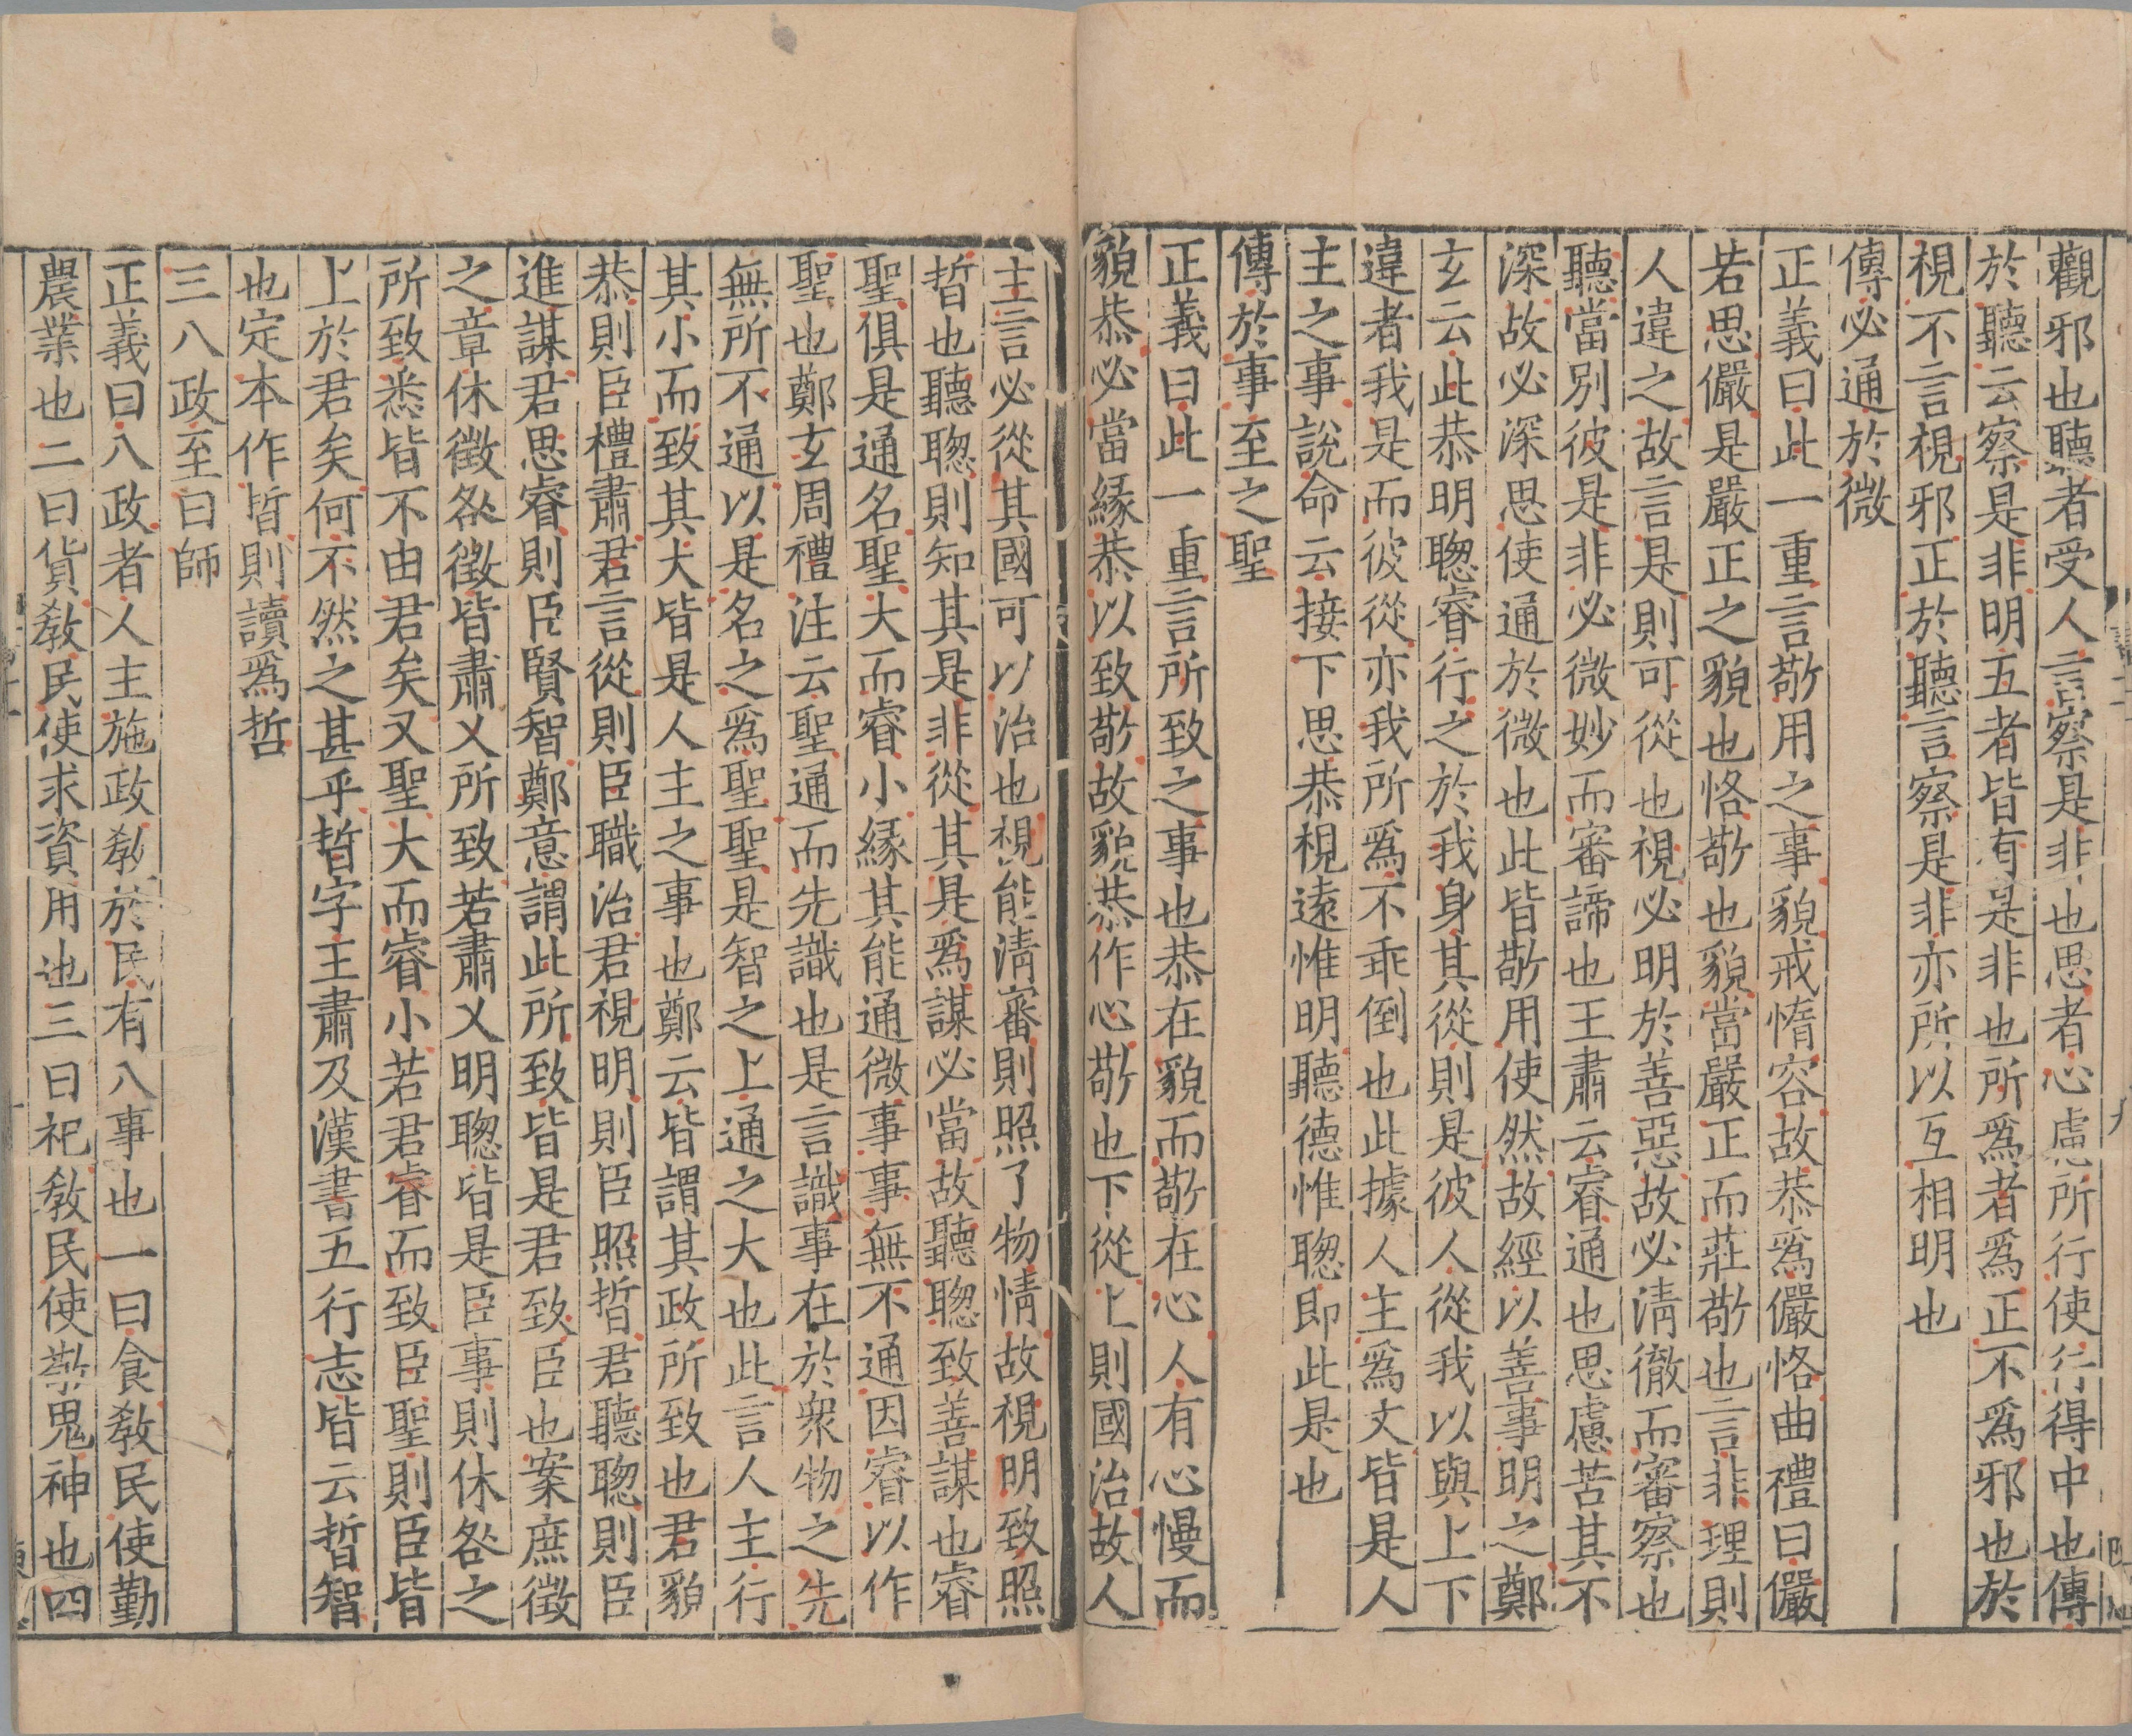 觀邪也聽者受人言察是非也思者心慮所行使行得中也傳
於聽云察是非明五者皆有是非也所爲者爲正不爲邪也於
視不言視邪正於聽言察是非亦所以互相明也
傳必通於微
正義曰此一重言敬用之事貌戒惰容故恭爲儼恪曲禮曰儼
若思儼是嚴正之貌也恪敬也貌當嚴正而莊敬也言非理則
人違之故言是則可從也視必明於善惡故必清徹而審察也
聽當別彼是非必微妙而審諦也王肅云睿通也思慮苦其不
深故必深思使通於微也此皆敬用使然故經以善事明之鄭
玄云此恭明聦睿行之於我身其從則是彼人從我以與上下
違者我是而彼從亦我所爲不乖倒也此據人主爲文皆是人
主之事說命云接下思恭視遠惟明聽德惟聦即此是也
傳於事至之聖
正義曰此一重言所致之事也恭在貌而敬在心人有心慢而
貌恭必當緣恭以致敬故貌恭作心敬也下從上則國治故人
主言必從其國可以治也視能清審則照了物情故視明致照
晢也聽聦則知其是非從其是爲謀必當故聽聦致善謀也睿
聖俱是通名聖大而睿小緣其能通微事事無不通因睿以作
聖也鄭玄周禮注云聖通而先識也是言識事在於衆物之先
無所不通以是名之爲聖聖是智之上通之大也此言人主行
其小而致其大皆是人主之事也鄭云皆謂其政所致也君貌
恭則臣禮肅君言從則臣職治君視明則臣照晢君聽聦則臣
進謀君思睿則臣賢智鄭意謂此所致皆是君致臣也案庶徵
之章休徵咎徵皆肅乂所致若肅乂明聦皆是臣事則休咎之
所致悉皆不由君矣又聖大而睿小若君睿而致臣聖則臣皆
上於君矣何不然之甚乎晢字王肅及漢書五行志皆云晢智
也定本作晢則讀爲哲
三八政至曰師
正義曰八政者人主施政敎於民有八事也一曰食敎民使勤
農業也二曰貨敎民使求資用也三曰祀敎民使敬鬼神也四